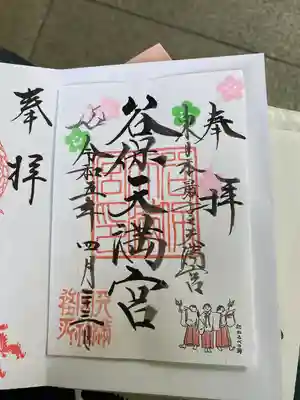 奉拝
東日本最古之天満宮
谷保天満宮
令和五年 四月
奉拝